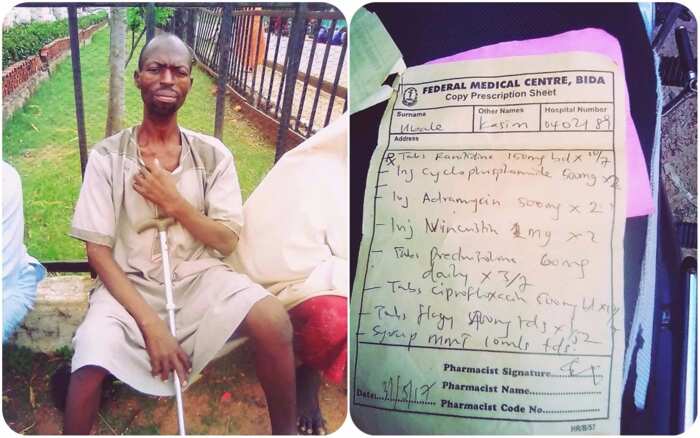 FEDERAL MEDICAL CENTRE, BIDA
Copy Prescription Sheet
Surname Other Names Hospital Number
Kasim 0402189
Address
Tabs Ranitidine 150mg bd x
Inj Cyclophosphamide 500mg x 2
Inj Adramycin 500mg x 2
Inj Vincristin mg x 2
Tabs Prednisolone 60mg
daily x 3/7
Tabs Ciprofloxacin 500mg bd x
Tabs flagyl 400mg tds x
Syrup MMT 10mls tds.
Pharmacist Signature
Date: Pharmacist Name
Pharmacist Code No
HR/B/57